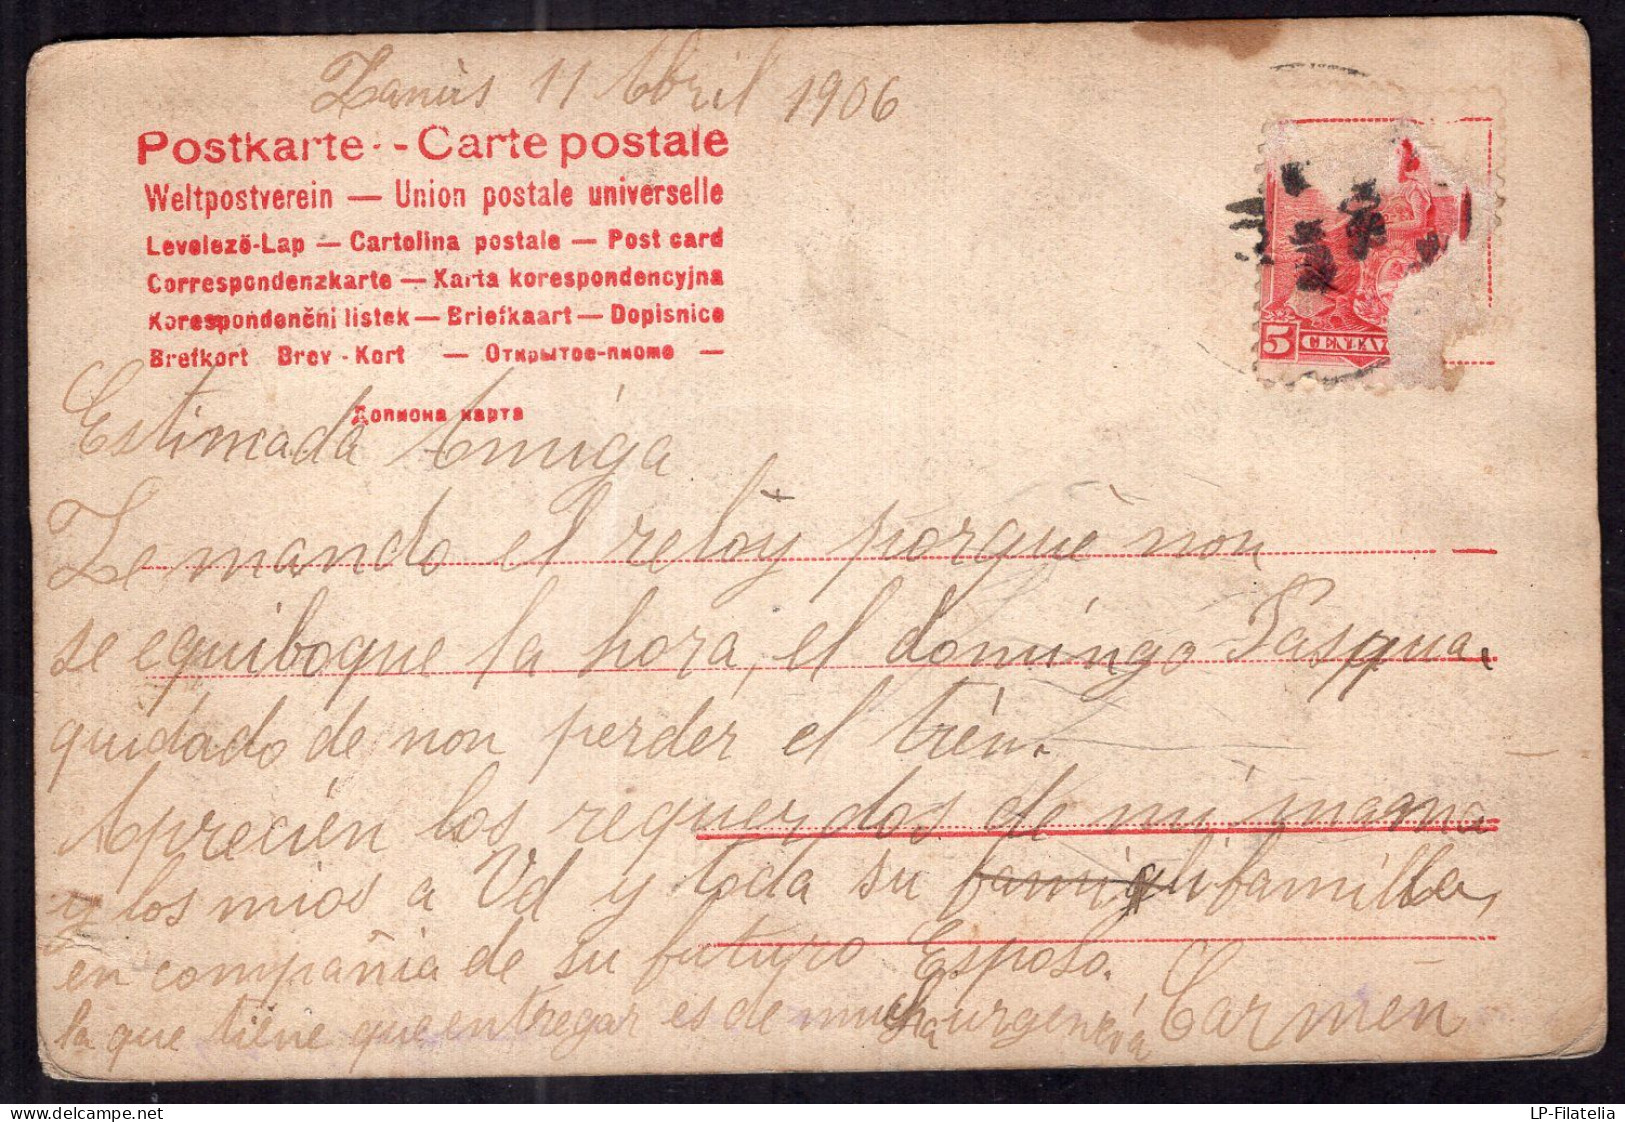 Lanús 11 Abril 1906
Postkarte - - Carte postale
Weltpostverein — Union postale universelle
Levelező-Lap — Cartolina postale — Post card
Correspondenzkarte — Karta korespondencyjna
Korespondenční listek — Briefkaart — Dopisnice
Brefkort Brev-Kort — Открытое-писмо —
Дописна карта
5 CENTAV
Estimada Amiga
Le mando el reloy porqué non
se equiboque la hora, el domingo Pasqua.
quidado de non perder el trén.
Aprecién los requerdos de mi mama
y los mios a Vd y toda su familla,
en compañia de su futuro Esposo.
la que tiene que entregar es de mucha urgencia Carmen
LP-Filatelia